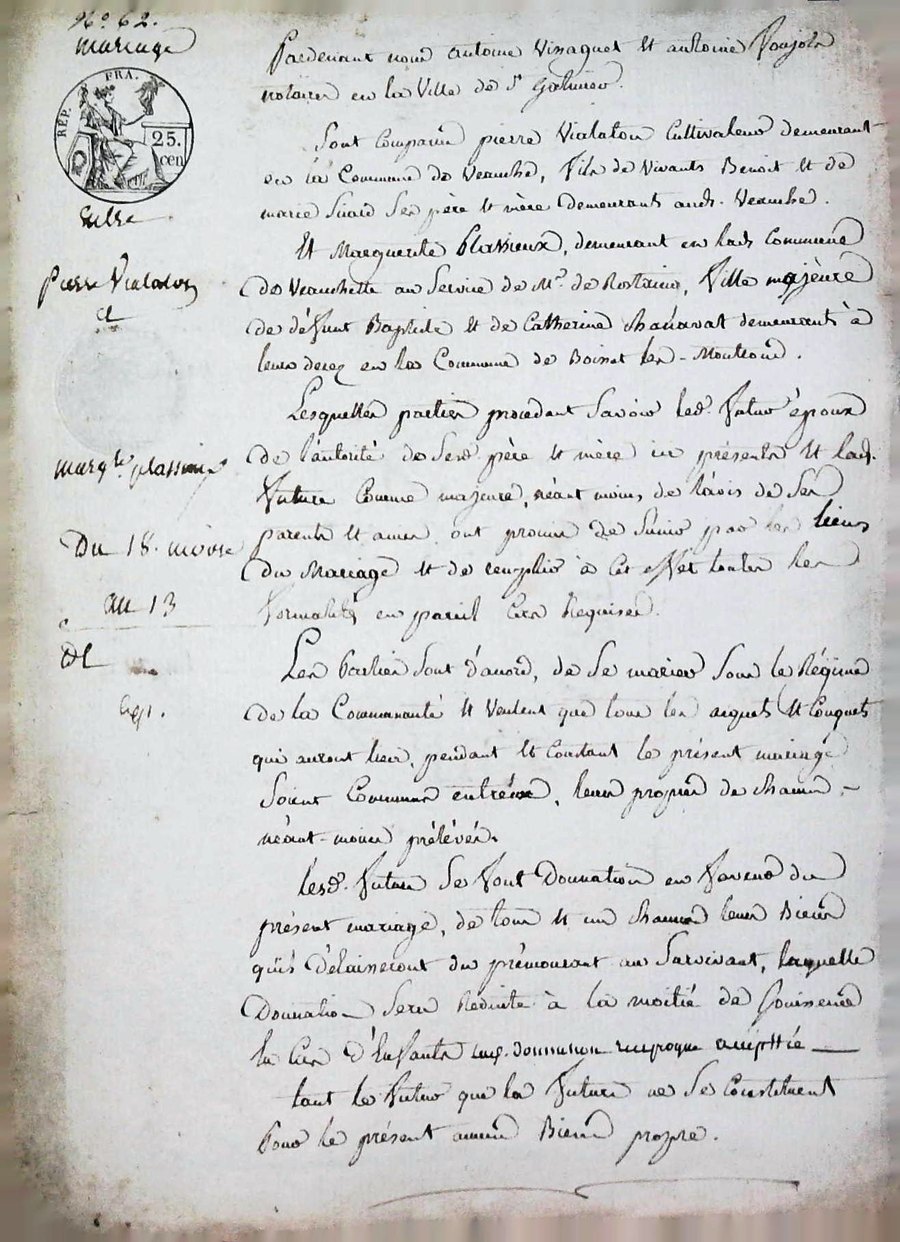 N.° 62.
mariage
RÉP. FRA.
25.
cen
Entre
Pierre Vialaton
et
marg.te plassieux
Du 18. nivose
an 13
Exp.
Pardevant nous antoine Vissaguet et antoine
notaires en la Ville de S.t Galmier.
Sont Comparus pierre Vialaton Cultivateur demeurant
en la Commune de Veauche, fils de Vivants Benoit et de
marie Sicard Ses père et mère demeurants aud. Veauche.
Et Marguerite Plassieux, demeurant en lad. Commune
de Veauchette au Service de M.r de Rostaing, fille majeure
de défunt Baptiste et de Catherine Chanavat demeurants à
leurs decez en la Commune de Boisset les-Montrond.
Lesquelles parties procedant Savoir led. futur époux
de l'autorité de Sesd. père et mère ici présents et lad.
future Comme majeure, néant moins de l'avis de Ses
parents et amis, ont promis de S'unir par les liens
du Mariage et de remplir à Cet effet toutes les
formalités en pareil Cas Requises.
Les Parties Sont d'acord, de Se marier Sous le Régime
de la Communauté et Veulent que tous les aquets et Conquets
qui auront lieu, pendant et Constant le présent mariage
Soient Communs entr'eux, leurs propres de Chacun
néant-moins prélévés.
lesd. futurs Se font Donnation en faveur du
présent mariage, de tous et un Chacuns leurs Biens
qu'ils délaisseront du prémourant au Survivant, laquelle
Donnation Sera Réduite à la moitié de Jouissance
en Cas d'Enfants donnation réciproque acceptée
tant le futur que la future ne Se Constituent
Pour le présent aucuns Biens propre.